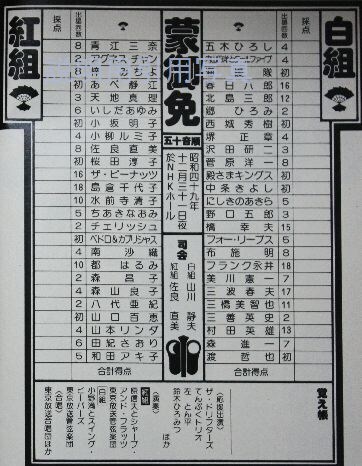 白組
採点
出場回数
五木ひろし 4
クールファイブ 4
隊 初
春日八郎 16
北島三郎 12
郷ひろみ 2
西城秀樹 初
堺正章 4
沢田研二 2
菅原洋一 8
殿さまキングス 初
中条きよし 初
にしきのあきら 5
野口五郎 3
橋幸夫 15
フォー・リーブス 5
布施明 8
フランク永井 18
美川憲一 7
三波春夫 17
三橋美智也
三善英史 2
村田英雄 13
森進一 7
渡哲也 初
合計得点
蒙御免
五十音順
昭和四十九年
十二月三十一日夜
於NHKホール
司会
白組 山川静夫
紅組 佐良直美
出場回数
採点
紅組
8 青江三奈
2 アグネスチャン
8 梓みちよ
初 あべ静江
3 天地真理
いしだあゆみ
初 小坂明子
4 小柳ルミ子
8 佐良直美
初 桜田淳子
16 ザ・ピーナッツ
18 島倉千代子
10 水前寺清子
5 ちあきなおみ
2 チェリッシュ
初 ペドロ&カプリシャス
4 南沙織
10 都はるみ
2 森昌子
2 森山良子
2 八代亜紀
初 山口百恵
4 山本リンダ
6 由紀さおり
5 和田アキ子
合計得点
覚え帳
〈応援出演〉
ザ・ドリフターズ
てんぷくトリオ
左とん平
鈴木ひろみつ
ほか
〈演奏〉
紅組
原信夫とシャープ・
アンド・フラッツ
東京放送管弦楽団
白組
小野満とスイング・
ビーバーズ
東京放送管弦楽団
〈合唱〉
東京放送合唱団ほか